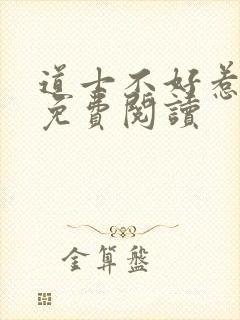 道士不好惹
免費閱讀
金算盤